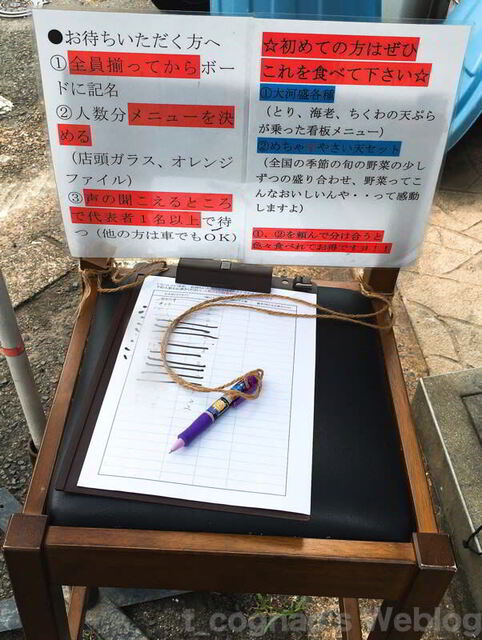 ●お待ちいただく方へ
①全員揃ってからボー
ドに記名
②人数分メニューを決
める
(店頭ガラス、オレンジ
ファイル)
③声の聞こえるところ
で代表者1名以上で待
つ(他の方は車でもOK)
☆初めての方はぜひ
これを食べて下さい☆
①大河盛各種
(とり、海老、ちくわの天ぷら
が乗った看板メニュー)
②めちゃすやさい天セット
(全国の季節の旬の野菜の少し
ずつの盛り合わせ、野菜ってこ
んなおいしいんや・・って感動
しますよ)
①、②を頼んで分け合うと
色々食べれてお得ですヨ!!
t_cognac's Weblog